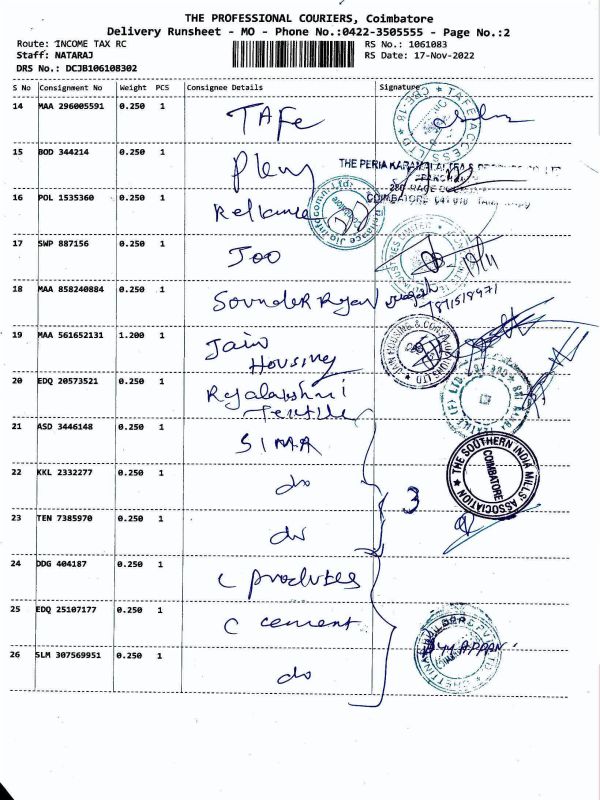 THE PROFESSIONAL COURIERS, Coimbatore
Delivery Runsheet - MO - Phone No.:0422-3505555 - Page No.:2
Route: INCOME TAX RC
RS No.: 1061083
Staff: NATARAJ
RS Date: 17-Nov-2022
DRS No.: DCJB106108302
S No Consignment No Weight PCS Consignee Details Signature
14 MAA 296005591 0.250 1 TAFe
15 BOD 344214 0.250 1
THE PERIA KARAMALAI TEA &
16 POL 1535360 0.250 1 Reliance
COIMBATORE
17 SWP 887156 0.250 1 Joo
18 MAA 858240884 0.250 1
19 MAA 561652131 1.200 1 Jain
Housing
JAIN HOUSING & CONSTRUCTIONS LTD
20 EDQ 20573521 0.250 1 Rajalakshmi
Textile
21 ASD 3446148 0.250 1 SIMA
THE SOUTHERN INDIA MILLS' ASSOCIATION
COIMBATORE
22 KKL 2332277 0.250 1 do
3
23 TEN 7385970 0.250 1 do
24 DDG 404187 0.250 1 C produtes
25 EDQ 25107177 0.250 1 C cement
26 SLM 307569951 0.250 1 do